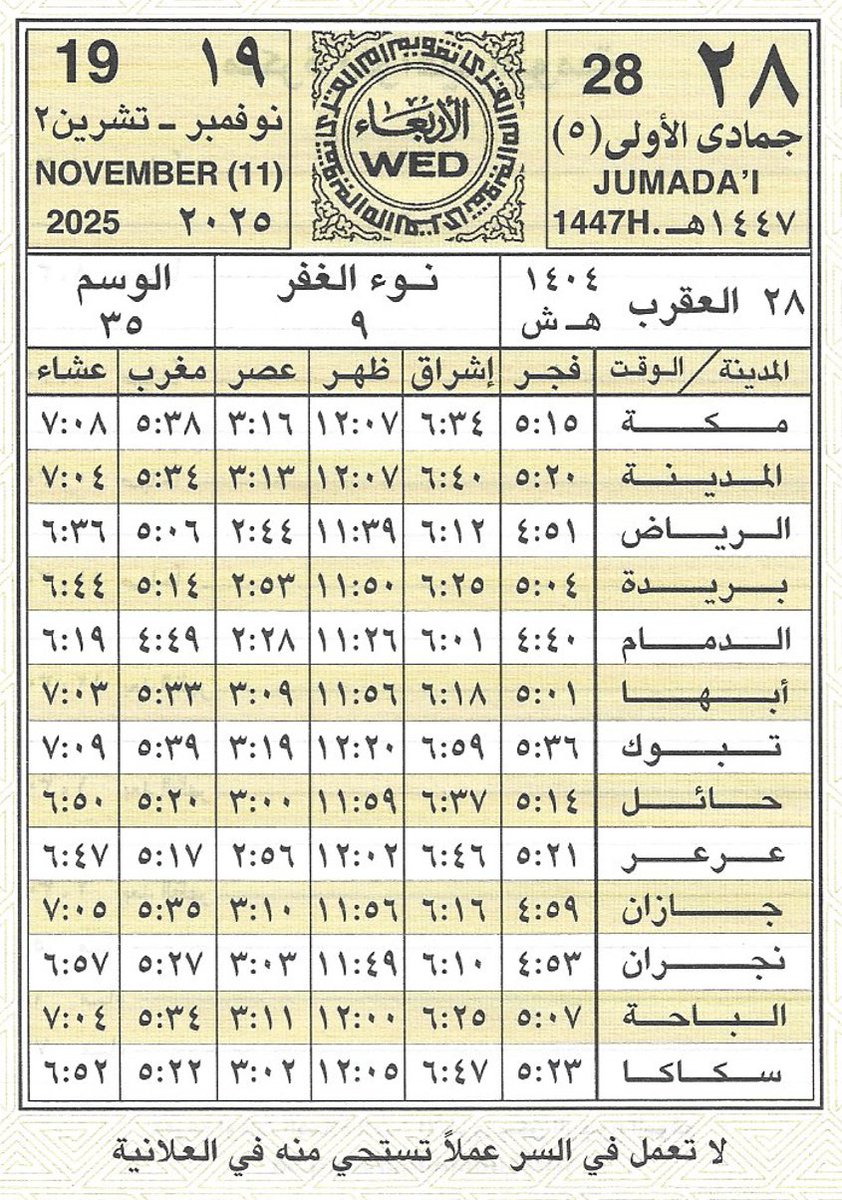 ٢٨ 28
جمادى الأولى (٥)
JUMADA'I
1447H. ١٤٤٧هـ
الأربعاء
WED
19 ١٩
نوفمبر ـ تشرين٢
NOVEMBER (11)
2025 ٢٠٢٥
٢٨ العقرب ١٤٠٤ هـ ش
نوء الغفر
٩
الوسم
٣٥
المدينة / الوقت فجر إشراق ظهر عصر مغرب عشاء
مكة ٥:١٥ ٦:٣٤ ١٢:٠٧ ٣:١٦ ٥:٣٨ ٧:٠٨
المدينة ٥:٢٠ ٦:٤٠ ١٢:٠٧ ٣:١٣ ٥:٣٤ ٧:٠٤
الرياض ٤:٥١ ٦:١٢ ١١:٣٩ ٢:٤٤ ٥:٠٦ ٦:٣٦
بريدة ٥:٠٤ ٦:٢٥ ١١:٥٠ ٢:٥٣ ٥:١٤ ٦:٤٤
الدمام ٤:٤٠ ٦:٠١ ١١:٢٦ ٢:٢٨ ٤:٤٩ ٦:١٩
أبها ٥:٠١ ٦:١٨ ١١:٥٦ ٣:٠٩ ٥:٣٣ ٧:٠٣
تبوك ٥:٣٦ ٦:٥٩ ١٢:٢٠ ٣:١٩ ٥:٣٩ ٧:٠٩
حائل ٥:١٤ ٦:٣٧ ١١:٥٩ ٣:٠٠ ٥:٢٠ ٦:٥٠
عرعر ٥:٢١ ٦:٤٦ ١٢:٠٢ ٢:٥٦ ٥:١٧ ٦:٤٧
جازان ٤:٥٩ ٦:١٦ ١١:٥٦ ٣:١٠ ٥:٣٥ ٧:٠٥
نجران ٤:٥٣ ٦:١٠ ١١:٤٩ ٣:٠٣ ٥:٢٧ ٦:٥٧
الباحة ٥:٠٧ ٦:٢٥ ١٢:٠٠ ٣:١١ ٥:٣٤ ٧:٠٤
سكاكا ٥:٢٣ ٦:٤٧ ١٢:٠٥ ٣:٠٢ ٥:٢٢ ٦:٥٢
لا تعمل في السر عملاً تستحي منه في العلانية